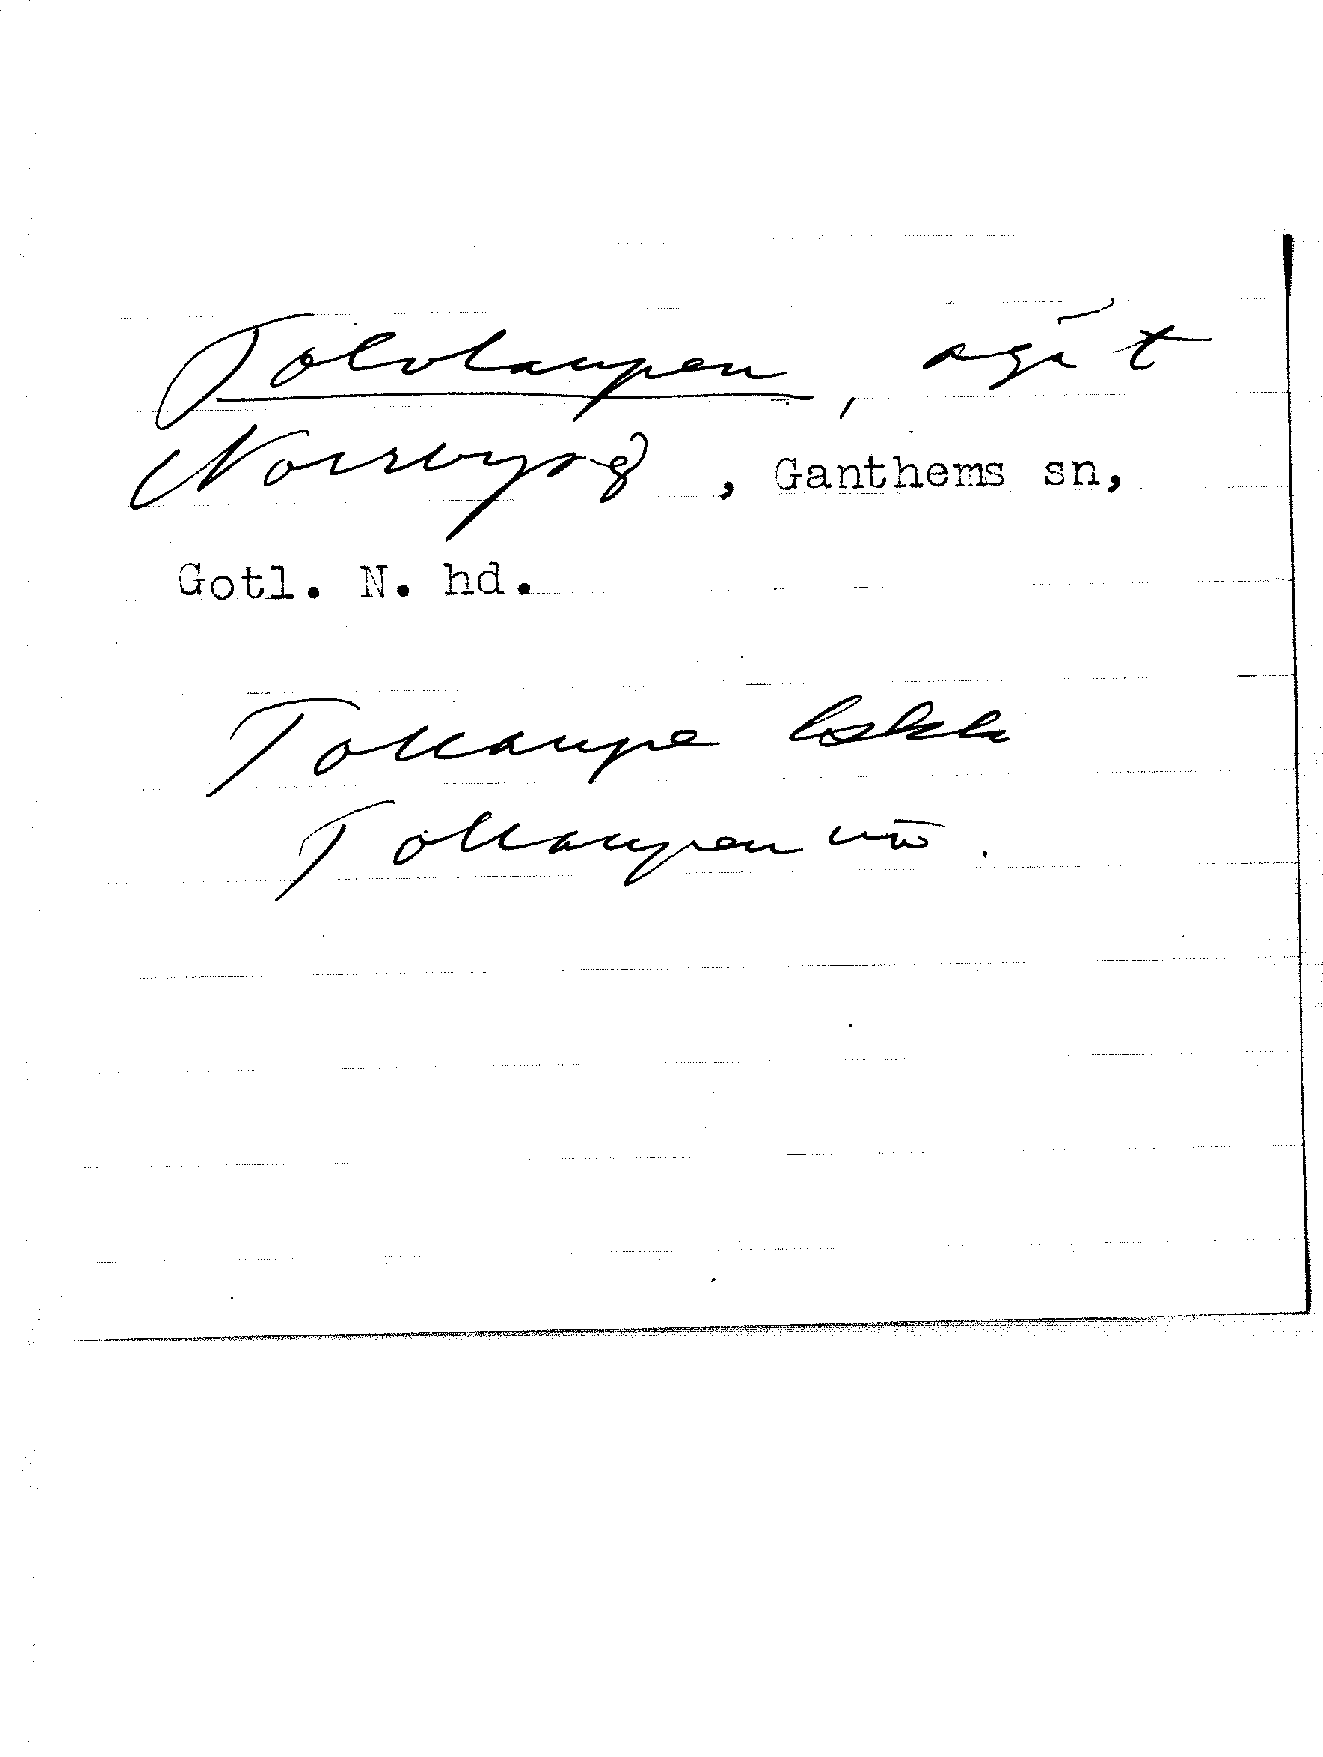 Tolvlaupen, ägā t
Norrbys g, Ganthems sn,
Gotl. N. hd.
Tollaupe
Tollaupen